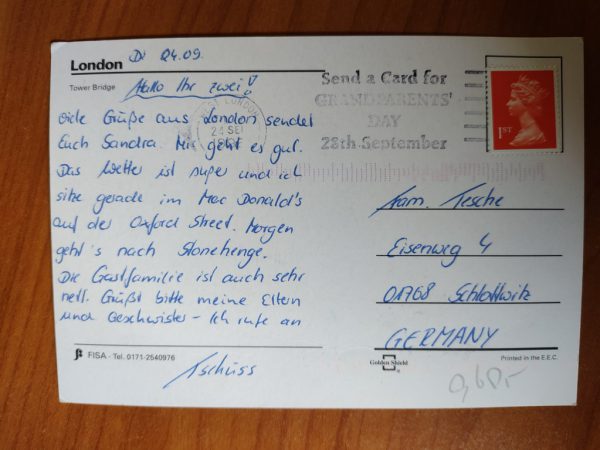 London
Di 24.09.
Tower Bridge
Hallo Ihr zwei!
viele Grüße aus London sendet
Euch Sandra. Mir geht es gut.
Das Wetter ist super und ich
sitze gerade im Mac Donald's
auf der Oxford Street. Morgen
geht's nach Stonehenge.
Die Gastfamilie ist auch sehr
nett. Grüßt bitte meine Eltern
und Geschwister - Ich rufe an
Tschüss
FISA - Tel. 0171-2540976
LONDON
24 SEP
Send a Card for
GRANDPARENTS'
DAY
28th September
1ST
Fam. Tesche
Eisenweg 4
01768 Schlottwitz
GERMANY
Golden Shield
Printed in the E.E.C.